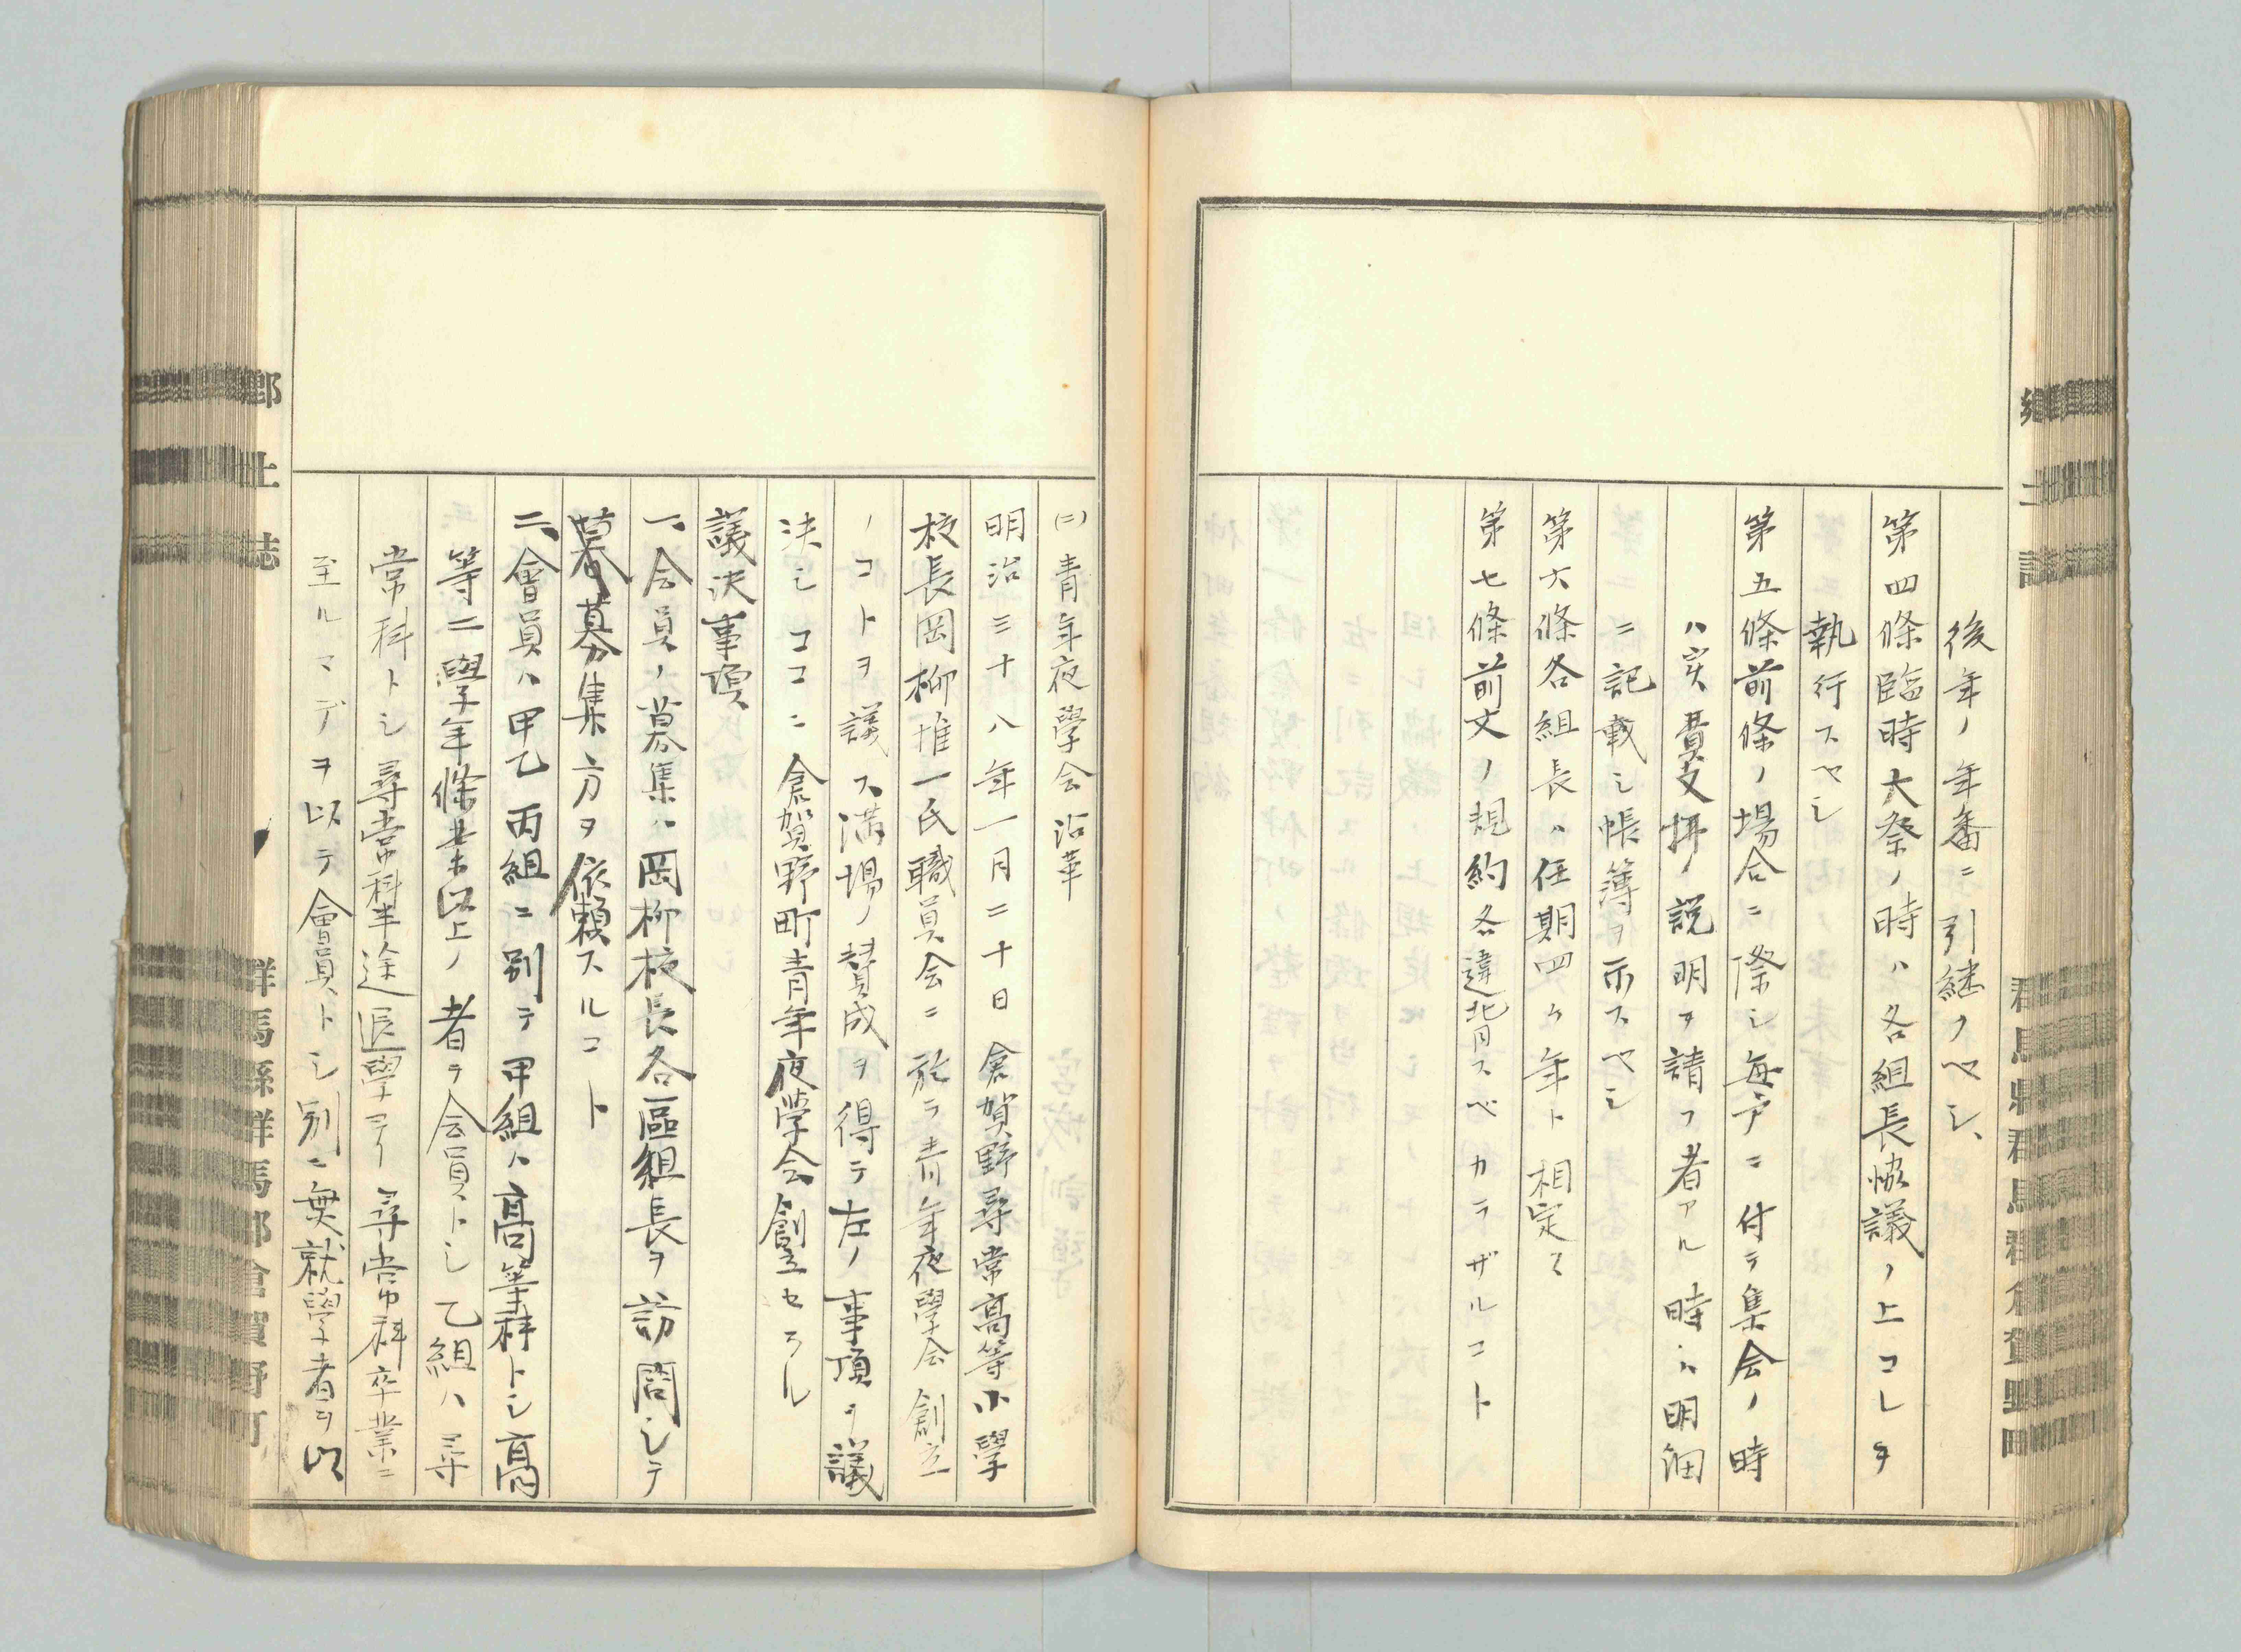 鄕土誌
後年ノ年番ニ引継クベシ、
第四條臨時大祭ノ時ハ各組長協議ノ上コレヲ
執行スベシ
第五條前條ノ場合ニ際シ毎戸ニ付テ集会ノ時
ハ実費支拂ノ説明ヲ請フ者アル時ハ明細
ニ記載シ帳簿ヲ示スベシ
第六條各組長ハ任期四ケ年ト相定ム
第七條前文ノ規約各違背スベカラザルコト
(二)青年夜學会沿革
明治三十八年一月二十日倉賀野尋常高等小學
校長岡柳推一氏職員会ニ於テ青年夜學会創立
ノコトヲ議ス満場ノ賛成ヲ得テ左ノ事項ヲ議
決シココニ倉賀野町青年夜學会創立セラル
議決事項
一、会員ノ募集ハ岡柳校長各區組長ヲ訪問シテ
募集方ヲ依頼スルコト
二、會員ハ甲乙丙組ニ別テ甲組ハ高等科トシ高
等二學年修業以上ノ者ヲ会員トシ乙組ハ尋
常科トシ尋常科半途退學ヨリ尋常科卒業ニ
至ルマデヲ以テ會員トシ別ニ無就學者ヲ以
鄕土誌
群馬縣群馬郡倉賀野町